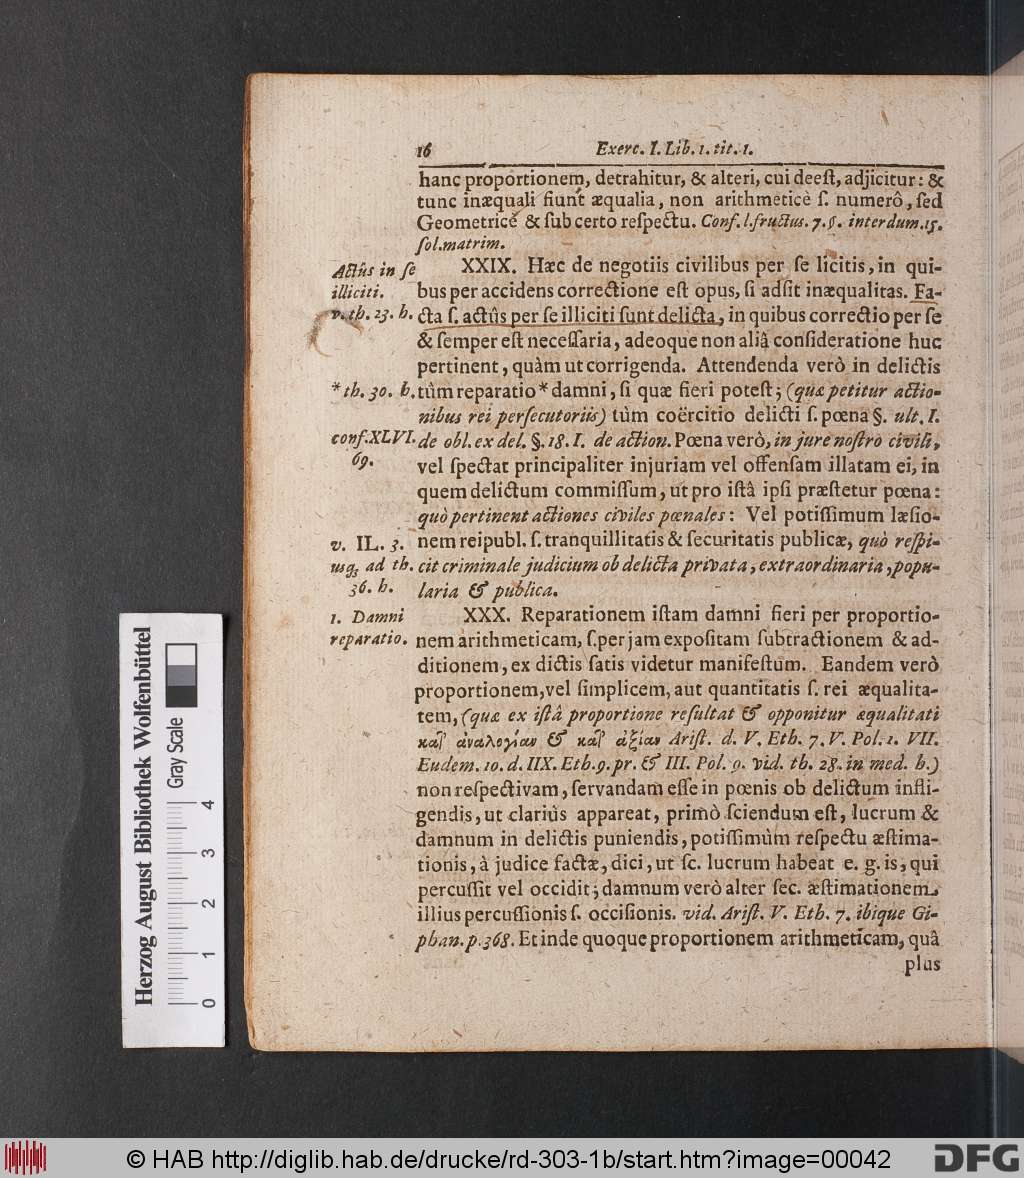 16 Exerc. I. Lib. 1. tit. 1.
hanc proportionem, detrahitur, & alteri, cui deeſt, adjicitur: &
tunc inæquali fiunt æqualia, non arithmeticè ſ. numerô, ſed
Geometricè & ſub certo reſpectu. Conf. l. fructus. 7. §. interdum. 15.
ſol. matrim.
Actûs in ſe
illiciti.
v. th. 23. h.
XXIX. Hæc de negotiis civilibus per ſe licitis, in qui-
bus per accidens correctione eſt opus, ſi adſit inæqualitas. Fa-
cta ſ. actûs per ſe illiciti ſunt delicta, in quibus correctio per ſe
& ſemper eſt neceſſaria, adeoque non aliâ conſideratione huc
pertinent, quàm ut corrigenda. Attendenda verò in delictis
* th. 30. h.
tùm reparatio * damni, ſi quæ fieri poteſt; (quæ petitur actio-
nibus rei perſecutoriis) tùm coërcitio delicti ſ. pœna §. ult. I.
conf. XLVI.
69.
de obl. ex del. §. 18. I. de action. Pœna verò, in jure noſtro civili,
vel ſpectat principaliter injuriam vel offenſam illatam ei, in
quem delictum commiſſum, ut pro iſtâ ipſi præſtetur pœna:
quò pertinent actiones civiles pœnales: Vel potiſſimum læſio-
v. IL. 3.
usq; ad th.
36. h.
nem reipubl. ſ. tranquillitatis & ſecuritatis publicæ, quò reſpi-
cit criminale judicium ob delicta privata, extraordinaria, popu-
laria & publica.
1. Damni
reparatio.
XXX. Reparationem iſtam damni fieri per proportio-
nem arithmeticam, ſ. per jam expoſitam ſubtractionem & ad-
ditionem, ex dictis ſatis videtur manifeſtum. Eandem verò
proportionem, vel ſimplicem, aut quantitatis ſ. rei æqualita-
tem, (quæ ex iſtâ proportione reſultat & opponitur æqualitati
κατ᾽ ἀναλογίαν & κατ᾽ ἀξίαν Ariſt. d. V. Eth. 7. V. Pol. 1. VII.
Eudem. 10. d. IIX. Eth. 9. pr. & III. Pol. 9. vid. th. 28. in med. h.)
non reſpectivam, ſervandam eſſe in pœnis ob delictum infli-
gendis, ut clariùs appareat, primò ſciendum eſt, lucrum &
damnum in delictis puniendis, potiſſimùm reſpectu æſtima-
tionis, à judice factæ, dici, ut ſc. lucrum habeat e. g. is, qui
percuſſit vel occidit; damnum verò alter ſec. æſtimationem
illius percuſſionis ſ. occiſionis. vid. Ariſt. V. Eth. 7. ibique Gi-
phan. p. 368. Et inde quoque proportionem arithmeticam, quâ
plus
Herzog August Bibliothek Wolfenbüttel
Gray Scale
0 1 2 3 4
© HAB http://diglib.hab.de/drucke/rd-303-1b/start.htm?image=00042
DFG